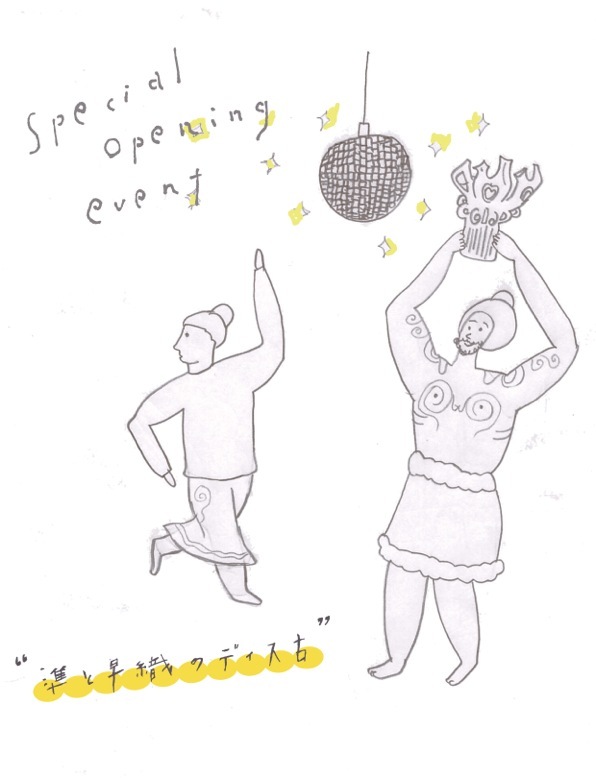 Special
opening
event
“準と早織のディス古”